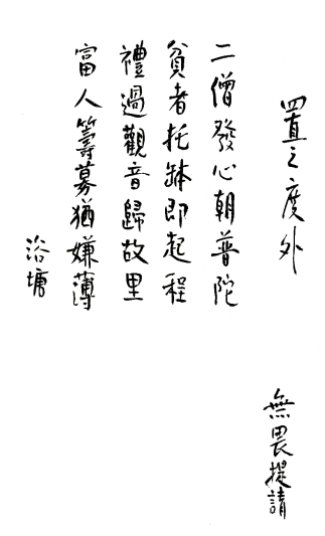 置之度外
二僧發心朝普陀
貧者托缽即起程
禮過觀音歸故里
富人籌募猶嫌薄
浴塘
無畏提請